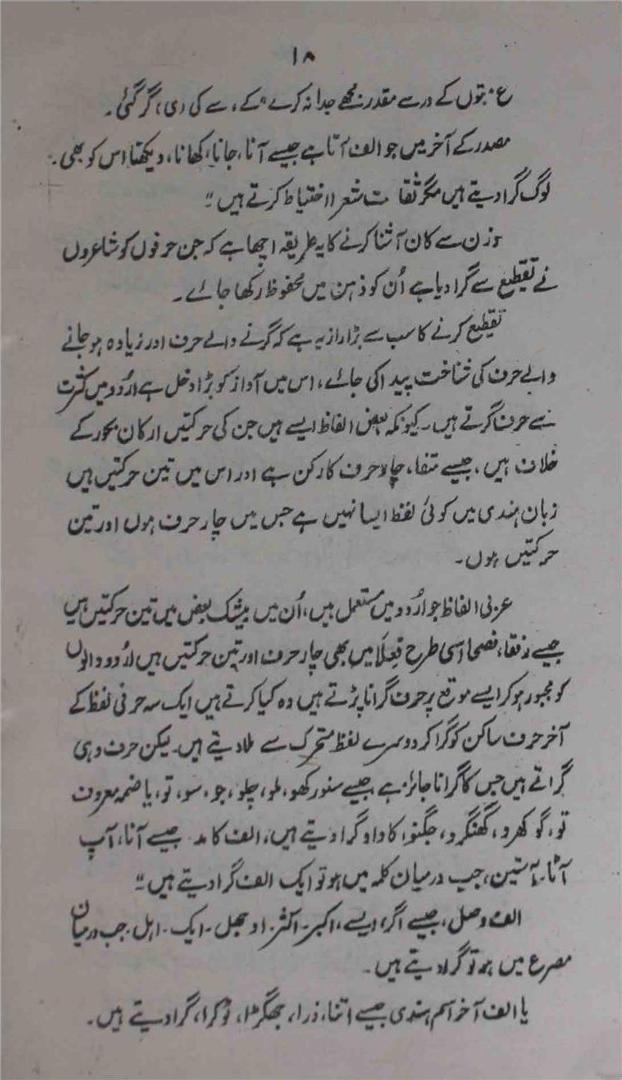 ۱۸
ع۔ بتوں کے در سے مقدر نہ مجھے جدا نہ کرے "کے، سے کی (ی) گر گئی۔
مصدر کے آخر میں جو الف آتا ہے جیسے آنا، جانا، کھانا، دیکھتا اس کو بھی۔
لوگ گرا دیتے ہیں مگر ثقات شعرا احتیاط کرتے ہیں"
وزن سے کان آشنا کرنے کا یہ طریقہ اچھا ہے کہ جن حرفوں کو شاعروں
نے تقطیع سے گرا دیا ہے اُن کو ذہن میں محفوظ رکھا جائے۔
تقطیع کرنے کا سب سے بڑا راز یہ ہے کہ گرنے والے حرف اور زیادہ ہو جانے
والے حرف کی شناخت پیدا کی جائے، اس میں آواز کو بڑا دخل ہے اردو میں کثرت
سے حرف گرتے ہیں۔ کیونکہ بعض الفاظ ایسے ہیں جن کی حرکتیں ارکان بحور کے
خلاف ہیں، جیسے متفا، چار حرف کا رکن ہے اور اس میں تین حرکتیں ہیں
زبان ہندی میں کوئی لفظ ایسا نہیں ہے جس میں چار حرف ہوں اور تین
حرکتیں ہوں۔
عربی الفاظ جو اردو میں مستعمل ہیں، اُن میں بیشک بعض میں تین حرکتیں ہیں
جیسے رفقا، فصحا اسی طرح فعلًا میں بھی چار حرف اور تین حرکتیں ہیں اردو والوں
کو مجبور ہو کر ایسے موقع پر حرف گرانا پڑتے ہیں وہ کیا کرتے ہیں ایک سہ حرفی لفظ کے
آخر حرف ساکن کو گرا کر دوسرے لفظ متحرک سے ملا دیتے ہیں۔ لیکن حرف وہی
گراتے ہیں جس کا گرانا جائز ہے، جیسے سنو رکھو، ملو، چلو، جو، سو، تو، یا ضمہ معروف
تو، گوکھرو، گھنگرو، جگنو، کا واو گرا دیتے ہیں، الف کا مد جیسے آنا، آپ
آٹا۔ آستین، جب درمیان کلمہ میں ہو تو ایک الف گرا دیتے ہیں"
الف وصل، جیسے اگر، ایسے، اکبر۔ اکثر، اوجھل۔ ایک۔ اہل جب درمیان
مصرع میں ہو تو گرا دیتے ہیں۔
یا الف آخر اسم ہندی جیسے اتنا، ذرا، جھگڑا، ٹوکرا، گرا دیتے ہیں۔